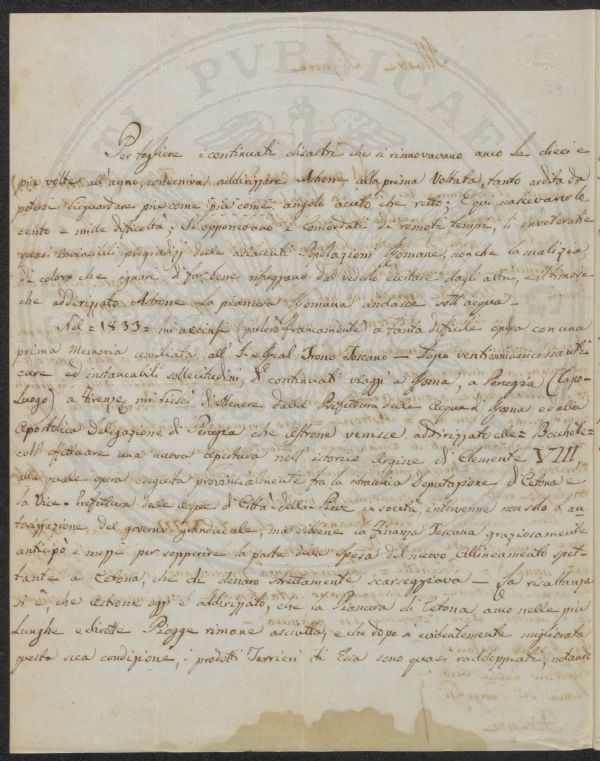 Per togliere i continuati disastri che si rinnovavano anco da dieci e
più volte all'anno, conveniva addirizzare Astrone alla prima Voltata, tanto ardita da
potersi risguardare più come angolo acuto che retto; E qui nascevano le
cento e mille difficoltà; Si opponevano i Concordati di remoti tempi, li inveterati e
quasi invincibili pregiudizj delle adiacenti Popolazioni Romane, non che la malizia
di coloro che ignari di far bene rifuggano dal vederlo eccitare dagli altri, e il timore
che addirizzato Astrone la pianura Romana andasse sott'acqua —
Nel = 1833 = mi accinsi (parlerò francamente) a tanta difficile opera con una
prima Memoria umiliata all' I. e Real Trono Toscano — Dopo venti anni incessanti
cure ed instancabili sollecitudini, di continuati viaggi a Roma, a Perugia (Capo-
Luogo) a Firenze, mi riescì d'ottenere dalla Prefettura delle Acque di Roma e dalla
Apostolica Delegazione di Perugia che Astrone venisse addirizzato alle = Bocchette =
coll' effettuare una nuova apertura nell' istorico Argine di Clemente VIII
alla quale opera eseguita provincialmente fra la Deputazione di Cetona e
la Vice-Prefettura delle acque di Città-della-Pieve in società, intervenne non solo au
torizzazione del governo granducale, ma sibbene la Finanza Toscana graziosamente
anticipò i mezzi per sopperire la parte della Spesa del nuovo Allineamento spet-
tante a Cetona, che di denaro strettamente scarseggiava — La risultanza
si è che Astrone oggi è addirizzato, che la Pianura di Cetona, anco nelle più
Lunghe e dirotte Piogge rimane asciutta, e che dopo sì evidentemente migliorata
questa sua condizione, i prodotti Terrieri di Essa sono quasi raddoppiati, notando
PVBLICAE